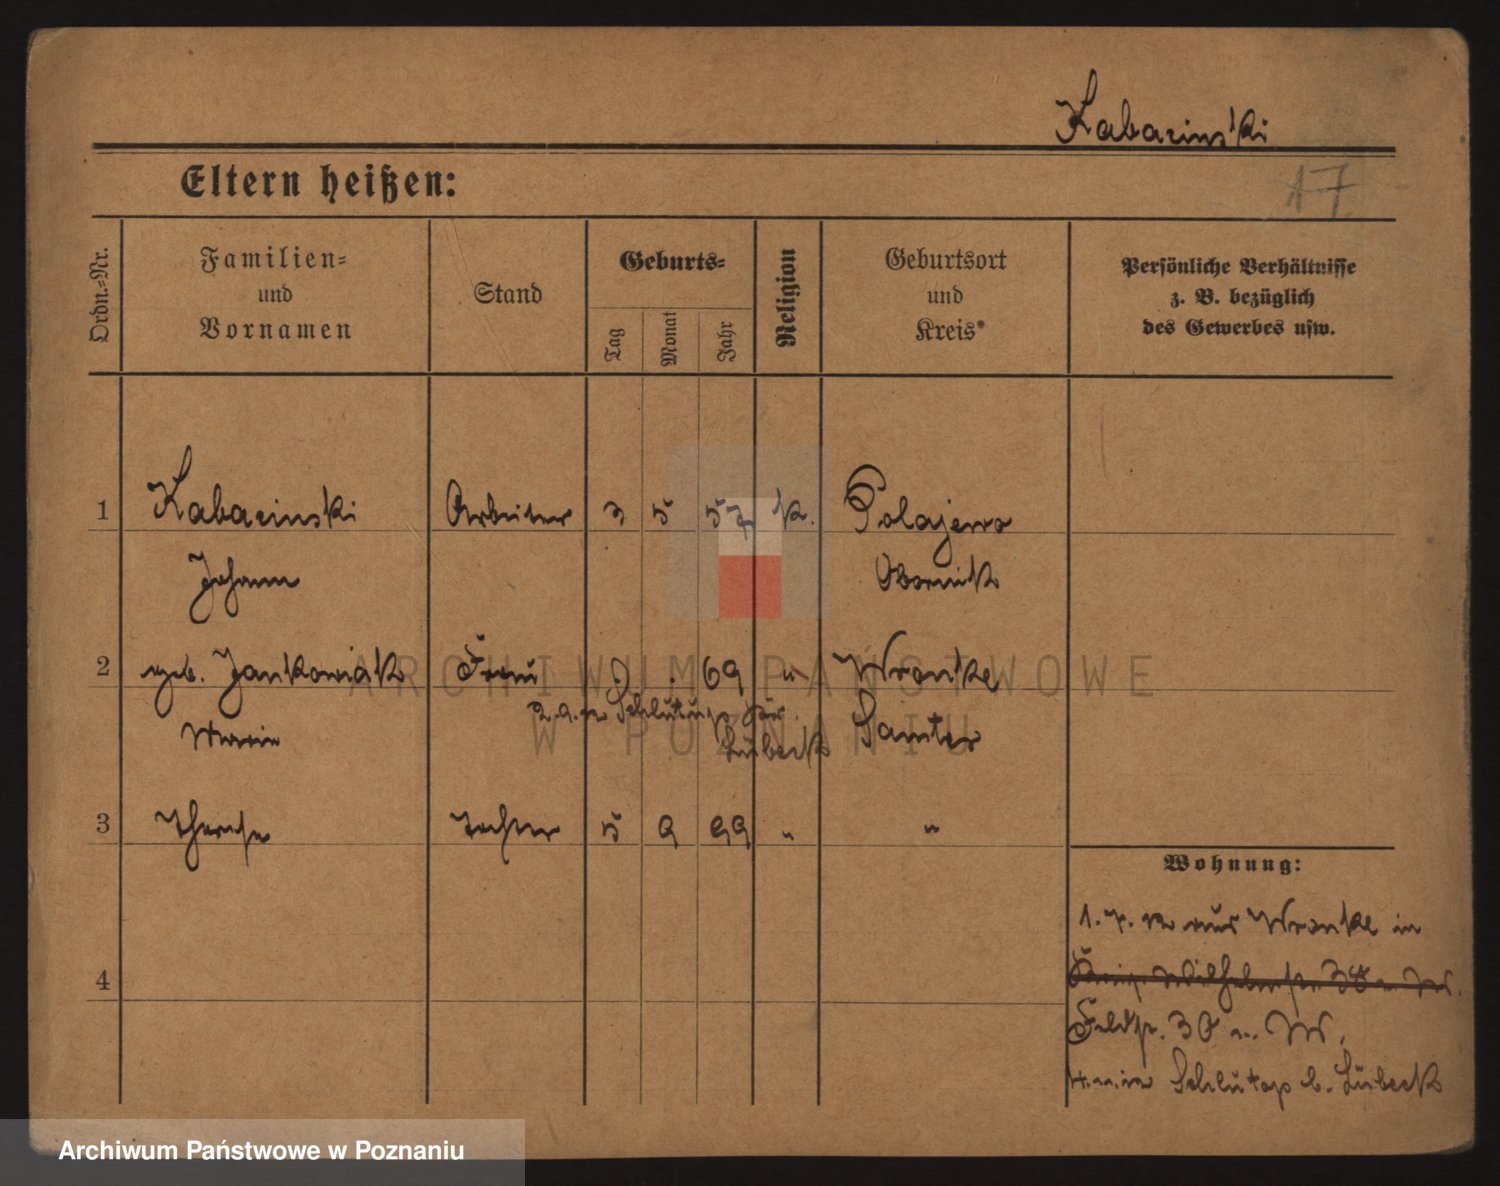 Kabacinski
17
Eltern heißen:
Ordn.-Nr.
Familien-
und
Vornamen
Stand
Geburts-
Tag
Monat
Jahr
Religion
Geburtsort
und
Kreis
Persönliche Verhältnisse
z. B. bezüglich
des Gewerbes usw.
1 Kabacinski Arbeiter 3 5 57 k. Polajewo
Johann Obornik
2 geb. Jankowiak Frau 69 " Wronke
Schlutup
Maria Lübeck Samter
3 Therese Tochter 5 9 99 " "
Wohnung:
1. 7. aus Wronke in
4
Feldstr. 30
Schlutup b. Lübeck
ARCHIWUM PAŃSTWOWE
W POZNANIU
Archiwum Państwowe w Poznaniu